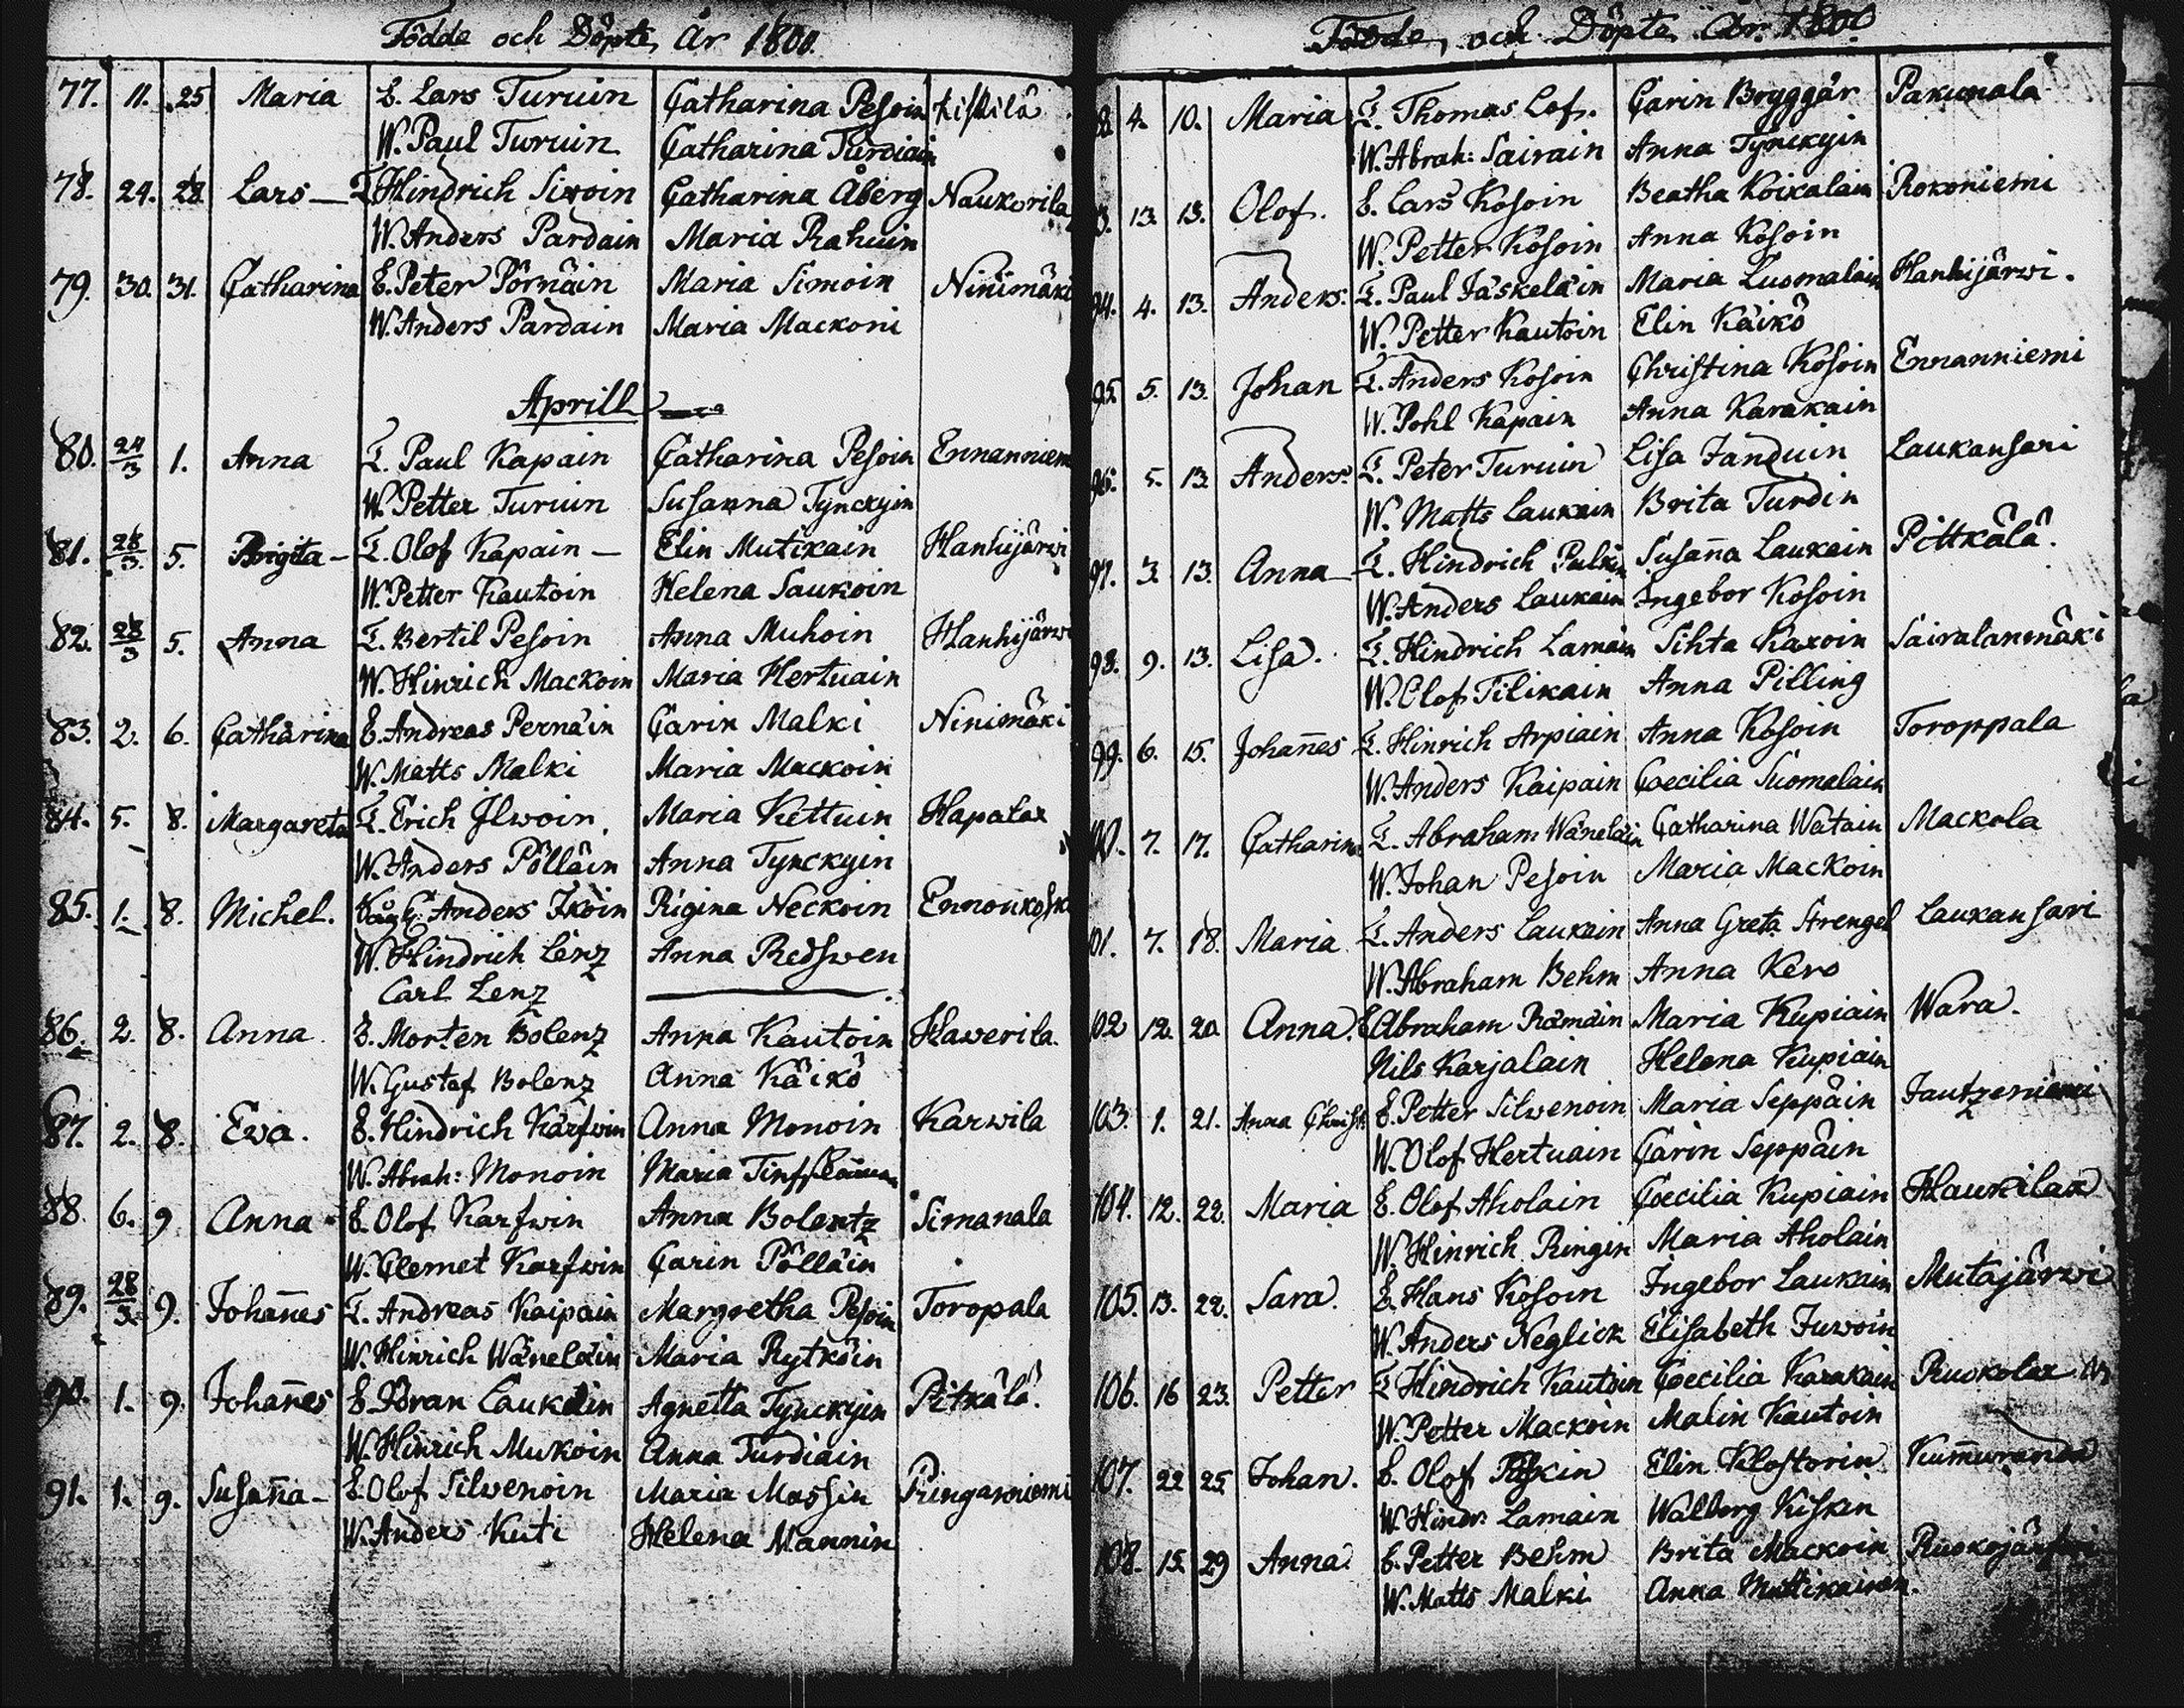 Födde och Döpte, År 1800.
77. 11. 25 Maria B. Lars Turuin Catharina Pesoin Kiskilä
W. Paul Turuin Catharina Turdiain
78. 24. 28 Lars — I. Hindrich Siwoin Catharina Åberg Naukorila
W. Anders Pardain Maria Rahuin
79. 30. 31. Catharina B. Peter Pörnäin Maria Simoin Ninimäki
W. Anders Pardain Maria Mackoni
Aprill
80. 24/3 1. Anna I. Paul Kapain Catharina Pesoin Ennanniem
W. Petter Turuin Susanna Tynckyin
81. 28/3. 5. Brigita — I. Olof Kapain — Elin Mutikain Hanhijärwi
W. Petter Kautoin Helena Saukoin
82. 28/3 5. Anna I. Bertil Pesoin Anna Muhoin Hanhijärwi
W. Hinrich Mackoin Maria Hertuain
83. 2. 6. Catharina B. Andreas Pernäin Carin Malki Ninimäki
W. Matts Malki Maria Mackoin
84. 5. 8. Margareta I. Erich Ilwoin Maria Kettuin Hapalax
W. Anders Pölläin Anna Tynckyin
85. 1. 8. Michel. Anders Ikoin Rigina Neckoin
W. Hindrich Lenz Anna Redswen
Carl Lenz
86. 2. 8. Anna. B. Morten Bolenz Anna Kautoin Hawerila.
W. Gustaf Bolenz Anna Käikö
87. 2. 8. Ewa. B. Hindrich Karfwin Anna Monoin Karwila
W. Abrah: Monoin Maria
88. 6. 9 Anna B. Olof Karfwin Anna Bolentz Simanala
W. Clemet Karfwin Carin Pölläin
89. 28/3. 9. Johan̄es I. Andreas Kaipain Margretha Pesoin Toropala
W. Hinrich Wäneläin Maria Rytköin
90. 1. 9. Johan̄es B. Göran Laukain Agnetta Tynckyin Pitkälä.
W. Hinrich Mukoin Anna Turdiain
91. 1. 9. Susan̄a — B. Olof Silwenoin Maria Massin Ringanniemi
W. Anders Kuti Helena Mannin
Födde, och Döpte År. 1800
4. 10. Maria I. Thomas Lof. Carin Brygggär Pakunala
W. Abrah: Sairain Anna Tynckyin
13. 13. Olof. B. Lars Kosoin Beatha Koikalain Rokoniemi
W. Petter Kosoin Anna Kosoin
94. 4. 13. Anders. I. Paul Jäskeläin Maria Suomalain Hanhijärwi.
W. Petter Kautoin Elin Käikö
95 5. 13. Johan I. Anders Kosoin Christina Kosoin Ennanniemi
W. Pohl Kapain Anna Karakain
96. 5. 13 Anders. I. Peter Turuin Lisa Janduin Laukansari
W. Matts Laukain Brita Turdin
97. 3. 13. Anna — I. Hindrich Pulkin Susan̄a Laukain Pittkälä.
W. Anders Laukain Ingebor Kosoin
98. 9. 13. Lisa. I. Hindrich Lamain Sihta Kaxoin Sairalanmäki
W. Olof Tilikain Anna Pilling
99. 6. 15. Johan̄es I. Hinrich Arpiain Anna Kosoin Toroppala
W. Anders Kaipain Coecilia Suomalain
100. 7. 17. Catharina I. Abraham Wäneläin Catharina Watain Mackola
W. Johan Pesoin Maria Mackoin
101. 7. 18. Maria I. Anders Laukain Anna Greta Strengel Laukansari
W. Abraham Behm Anna Kero
102 12. 20. Anna. B. Abraham Rämäin Maria Kupiain Wara.
Nils Karjalain Helena Kupiain
103. 1. 21. Anna Christ B. Petter Silwenoin Maria Seppäin Jautzeniemi
W. Olof Hertuain Carin Seppäin
104. 12. 22. Maria B. Olof Aholain Coecilia Kupiain Haukilax
W. Hinrich Ringin Maria Aholain
105. 13. 22. Sara. B. Hans Kosoin Ingebor Laukain Mutajärwi
W. Anders Neglick Elisabeth Juwoin
106. 16 23. Petter I. Hindrich Kautoin Coecilia Karakain Ruokolax
W. Petter Mackoin Malin Kautoin
107. 22 25 Johan. B. Olof Elin Klostorin Kum̄uranda
W. Hindr. Lamain Walborg Kiskin
108. 15. 29 Anna. B. Petter Behm Brita Mackoin Ruokojärfwi
W. Matts Malki Anna Muttikainen.